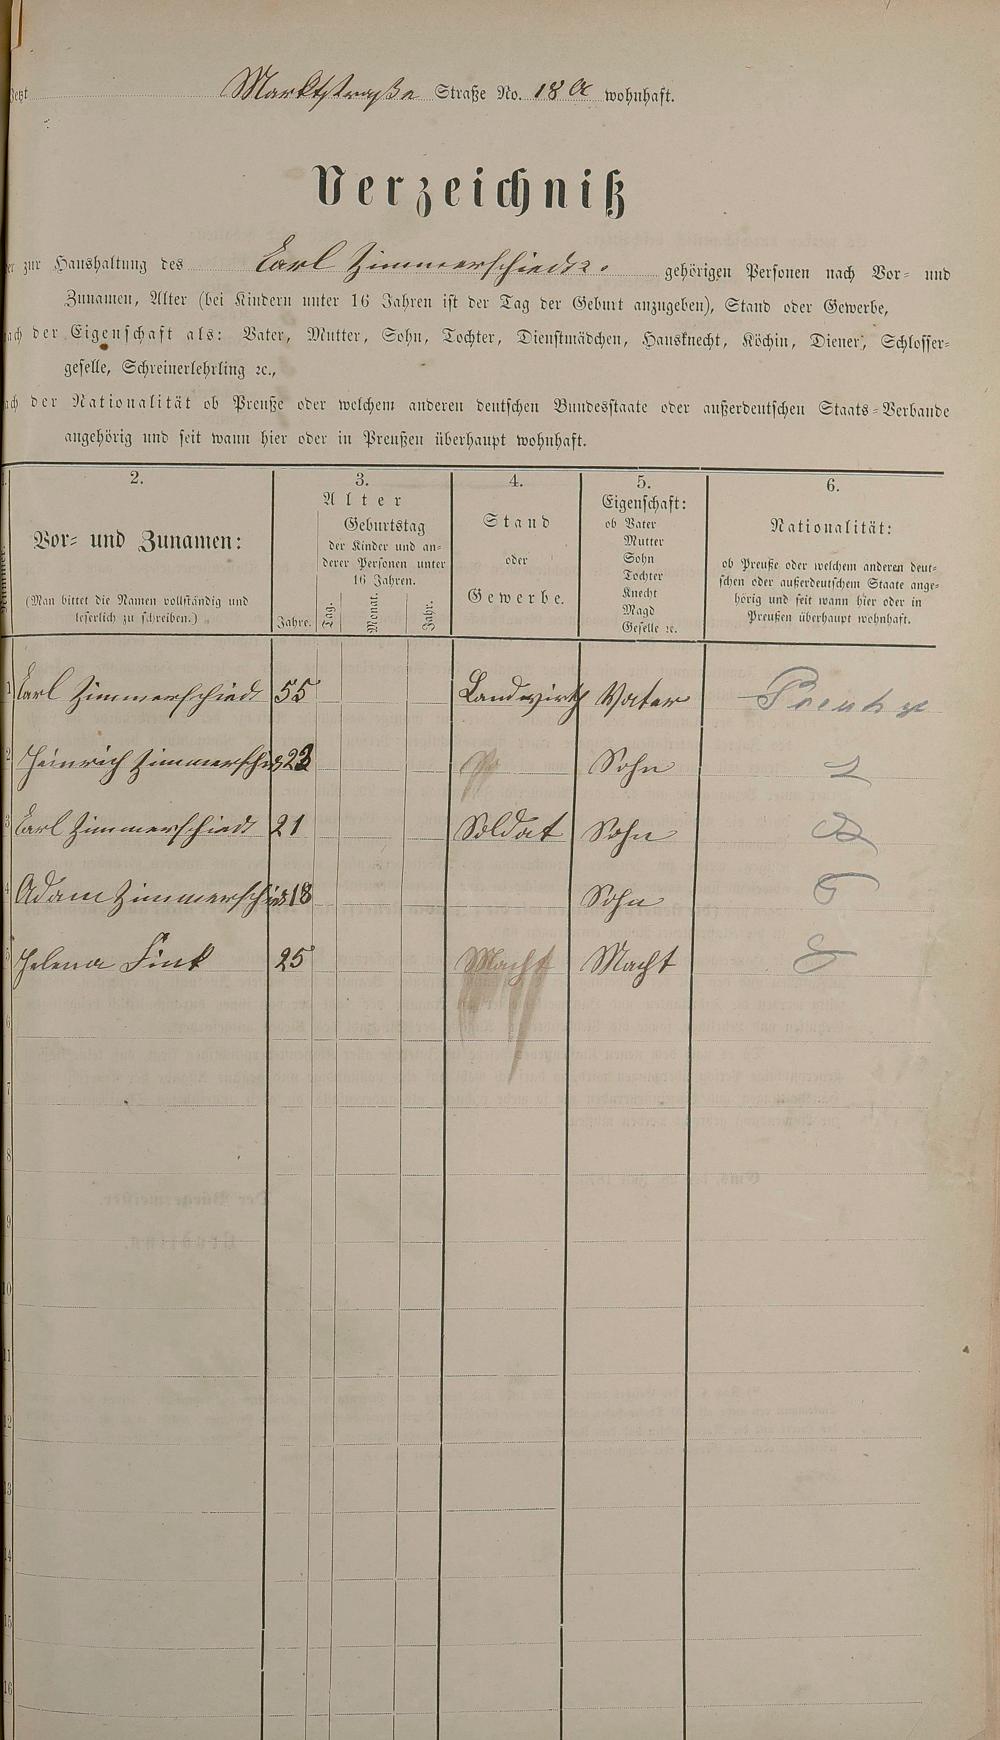 Jetzt Marktstraße Straße No. 18 a wohnhaft.
Verzeichniß
der zur Haushaltung des Carl Zimmerschied 2. gehörigen Personen nach Vor- und
Zunamen, Alter (bei Kindern unter 16 Jahren ist der Tag der Geburt anzugeben), Stand oder Gewerbe,
nach der Eigenschaft als: Vater, Mutter, Sohn, Tochter, Dienstmädchen, Hausknecht, Köchin, Diener, Schlosser-
geselle, Schreinerlehrling ꝛc.,
nach der Nationalität ob Preuße oder welchem anderen deutschen Bundesstaate oder außerdeutschen Staats-Verbande
angehörig und seit wann hier oder in Preußen überhaupt wohnhaft.
1.
Nummer.
2.
Vor- und Zunamen:
(Man bittet die Namen vollständig und
leserlich zu schreiben.)
3.
Alter
Jahre.
Geburtstag
der Kinder und an-
derer Personen unter
16 Jahren.
Tag.
Monat.
Jahr.
4.
Stand
oder
Gewerbe.
5.
Eigenschaft:
ob Vater
Mutter
Sohn
Tochter
Knecht
Magd
Geselle ꝛc.
6.
Nationalität:
ob Preuße oder welchem anderen deut-
schen oder außerdeutschem Staate ange-
hörig und seit wann hier oder in
Preußen überhaupt wohnhaft.
1 Carl Zimmerschied 55 Landwirth Vater Preuße
2 Heinrich Zimmerschied 23 Sohn
3 Carl Zimmerschied 21 Soldat Sohn
4 Adam Zimmerschied 18 Sohn
5 Helena Fink 25 Macht Macht
6
7
8
9
10
11
12
13
14
15
16